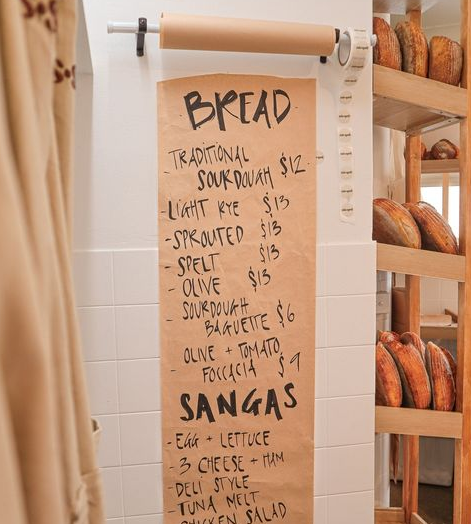 BREAD
- TRADITIONAL
SOURDOUGH $12
- LIGHT RYE $13
- SPROUTED $13
- SPELT $13
- OLIVE $13
- SOURDOUGH
BAGUETTE $6
- OLIVE + TOMATO
FOCCACIA $9
SANGAS
- EGG + LETTUCE
- 3 CHEESE + HAM
- DELI STYLE
- TUNA MELT
- CHICKEN SALAD